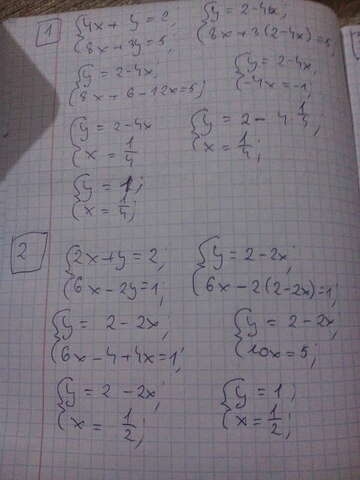 1
{4x + y = 2,
{8x + 3y = 5,
{y = 2 - 4x;
{8x + 3(2 - 4x) = 5;
{y = 2 - 4x;
{8x + 6 - 12x = 5;
{y = 2 - 4x;
{-4x = -1;
{y = 2 - 4x
{x = 1/4
{y = 2 - 4 · 1/4
{x = 1/4;
{y = 1;
{x = 1/4;
2
{2x + y = 2,
{6x - 2y = 1;
{y = 2 - 2x;
{6x - 2(2 - 2x) = 1;
{y = 2 - 2x,
{6x - 4 + 4x = 1;
{y = 2 - 2x,
{10x = 5;
{y = 2 - 2x;
{x = 1/2;
{y = 1;
{x = 1/2;